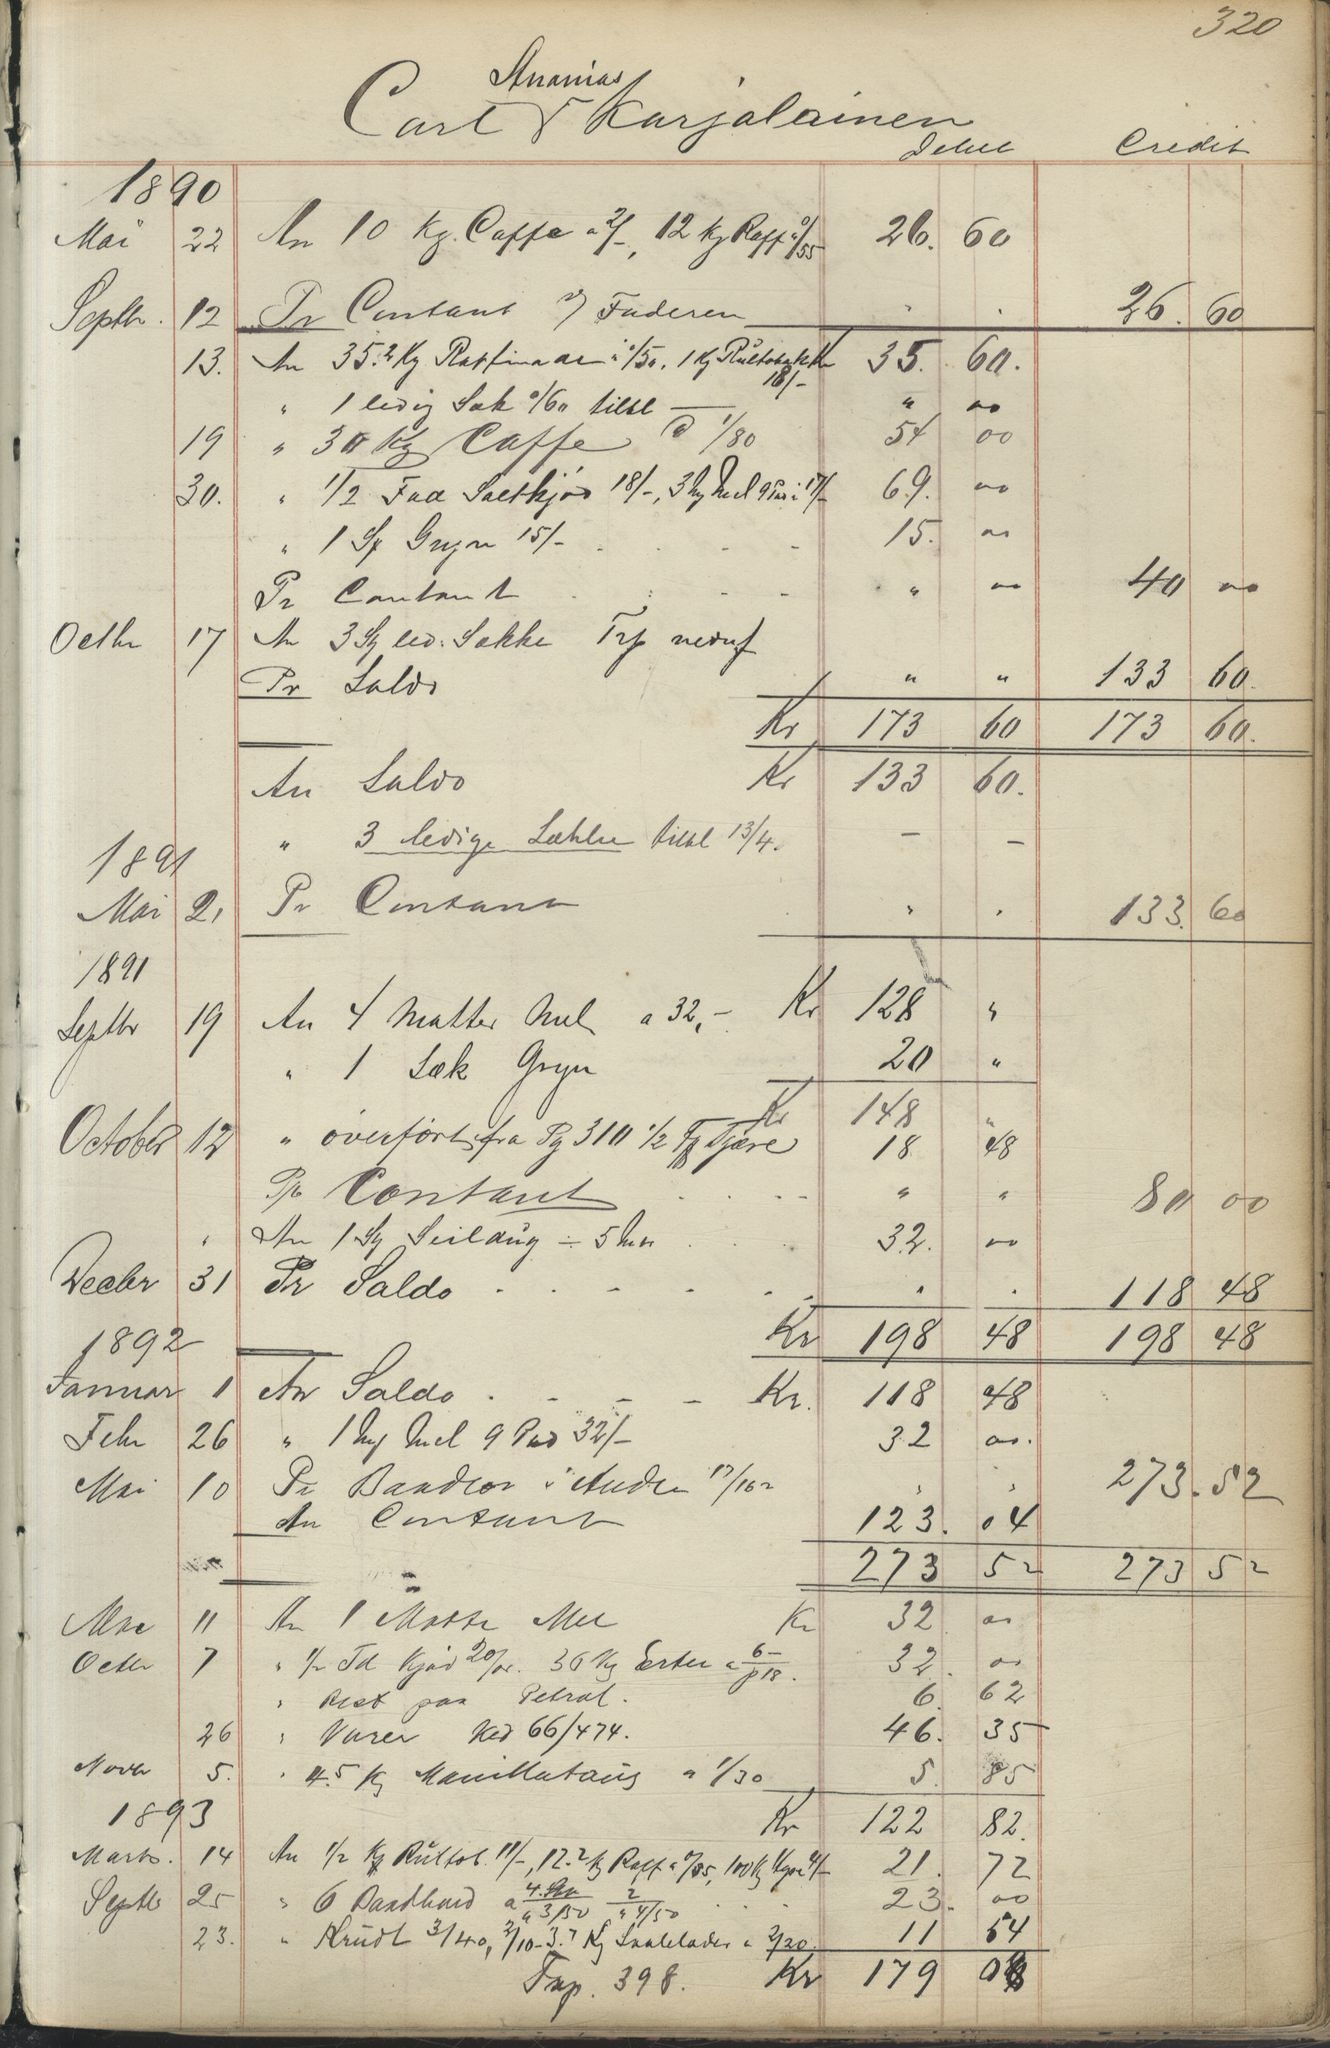 320
Ananias
Carl Karjalainen
Debet Credit
1890
Mai 22 An 10 Kg. Caffe a 2/-, 12 kg Raff a 0/55 26. 60
Septbr. 12 Pr Contant v/ Faderen " . 26. 60
13. An 35.2 Kg Raffinade a 0/50, 1 Kg Rultobakk 35. 60.
18/-
" 1 ledig Sæk 0/60 tilbl " "
19 " 30 Kg Caffe @ 1/80 54 00
30. " 1/2 Fad Saltkjød 18/-, 3 Mel 9 Pud a 17/- 69. "
" 1 Sæk Gryn 15/- 15. "
Pr Contant " " 40 "
Octbr 17 An 3 led. Sække
Pr Saldo " " 133 60.
Kr 173 60 173 60.
An Saldo Kr 133 60.
" 3 ledige Sække tilbl 13/4. - -
1891
Mai 21 Pr Contant " . 133. 60
1891
Septbr 19 An 4 Matter Mel a 32,- Kr 128 "
" 1 Sæk Gryn 20 "
Kr 148 "
October 12 " överfört fra Pg 310 1/2 Tjære 18 48
Pr Contant " " 80 00
" An 1 Seildug - 5 32. 00
Decbr 31 Pr Saldo . . 118 48
Kr 198 48 198 48
1892
Januar 1 An Saldo Kr. 118 48
Febr 26 " 1 Mel 9 Pud 32/- 32 00.
Mai 10 Pr " . 273. 52
An Contant 123. 04
273 52 273 52
Mai 11 An 1 Matte Mel Kr 32 00
Octbr 7 " 1/2 Td Kjød 20/00. 36 Kg Erter a 6-/p18. 32. 00
" Rest paa Petrol. 6. 62
26 " Varer Kd 66/474. 46. 35
Novbr 5. " 4.5 Kg Manillataug a 1/30 5. 85
Kr 122 82.
1893
Marts. 14 An 1/2 Kg Rultob. 11/-, 12.2 Kg Raff a 0/85, 100 Kg 21. 72
Septb 25 " 6 Baadbord a 4/a 3/50 2/a 4/50 23. 00
23. " Krudt 3/40, 2/10 - 3.7 Kg Saalelæder a 2/20. 11 54
Trp. 398. Kr 179 08